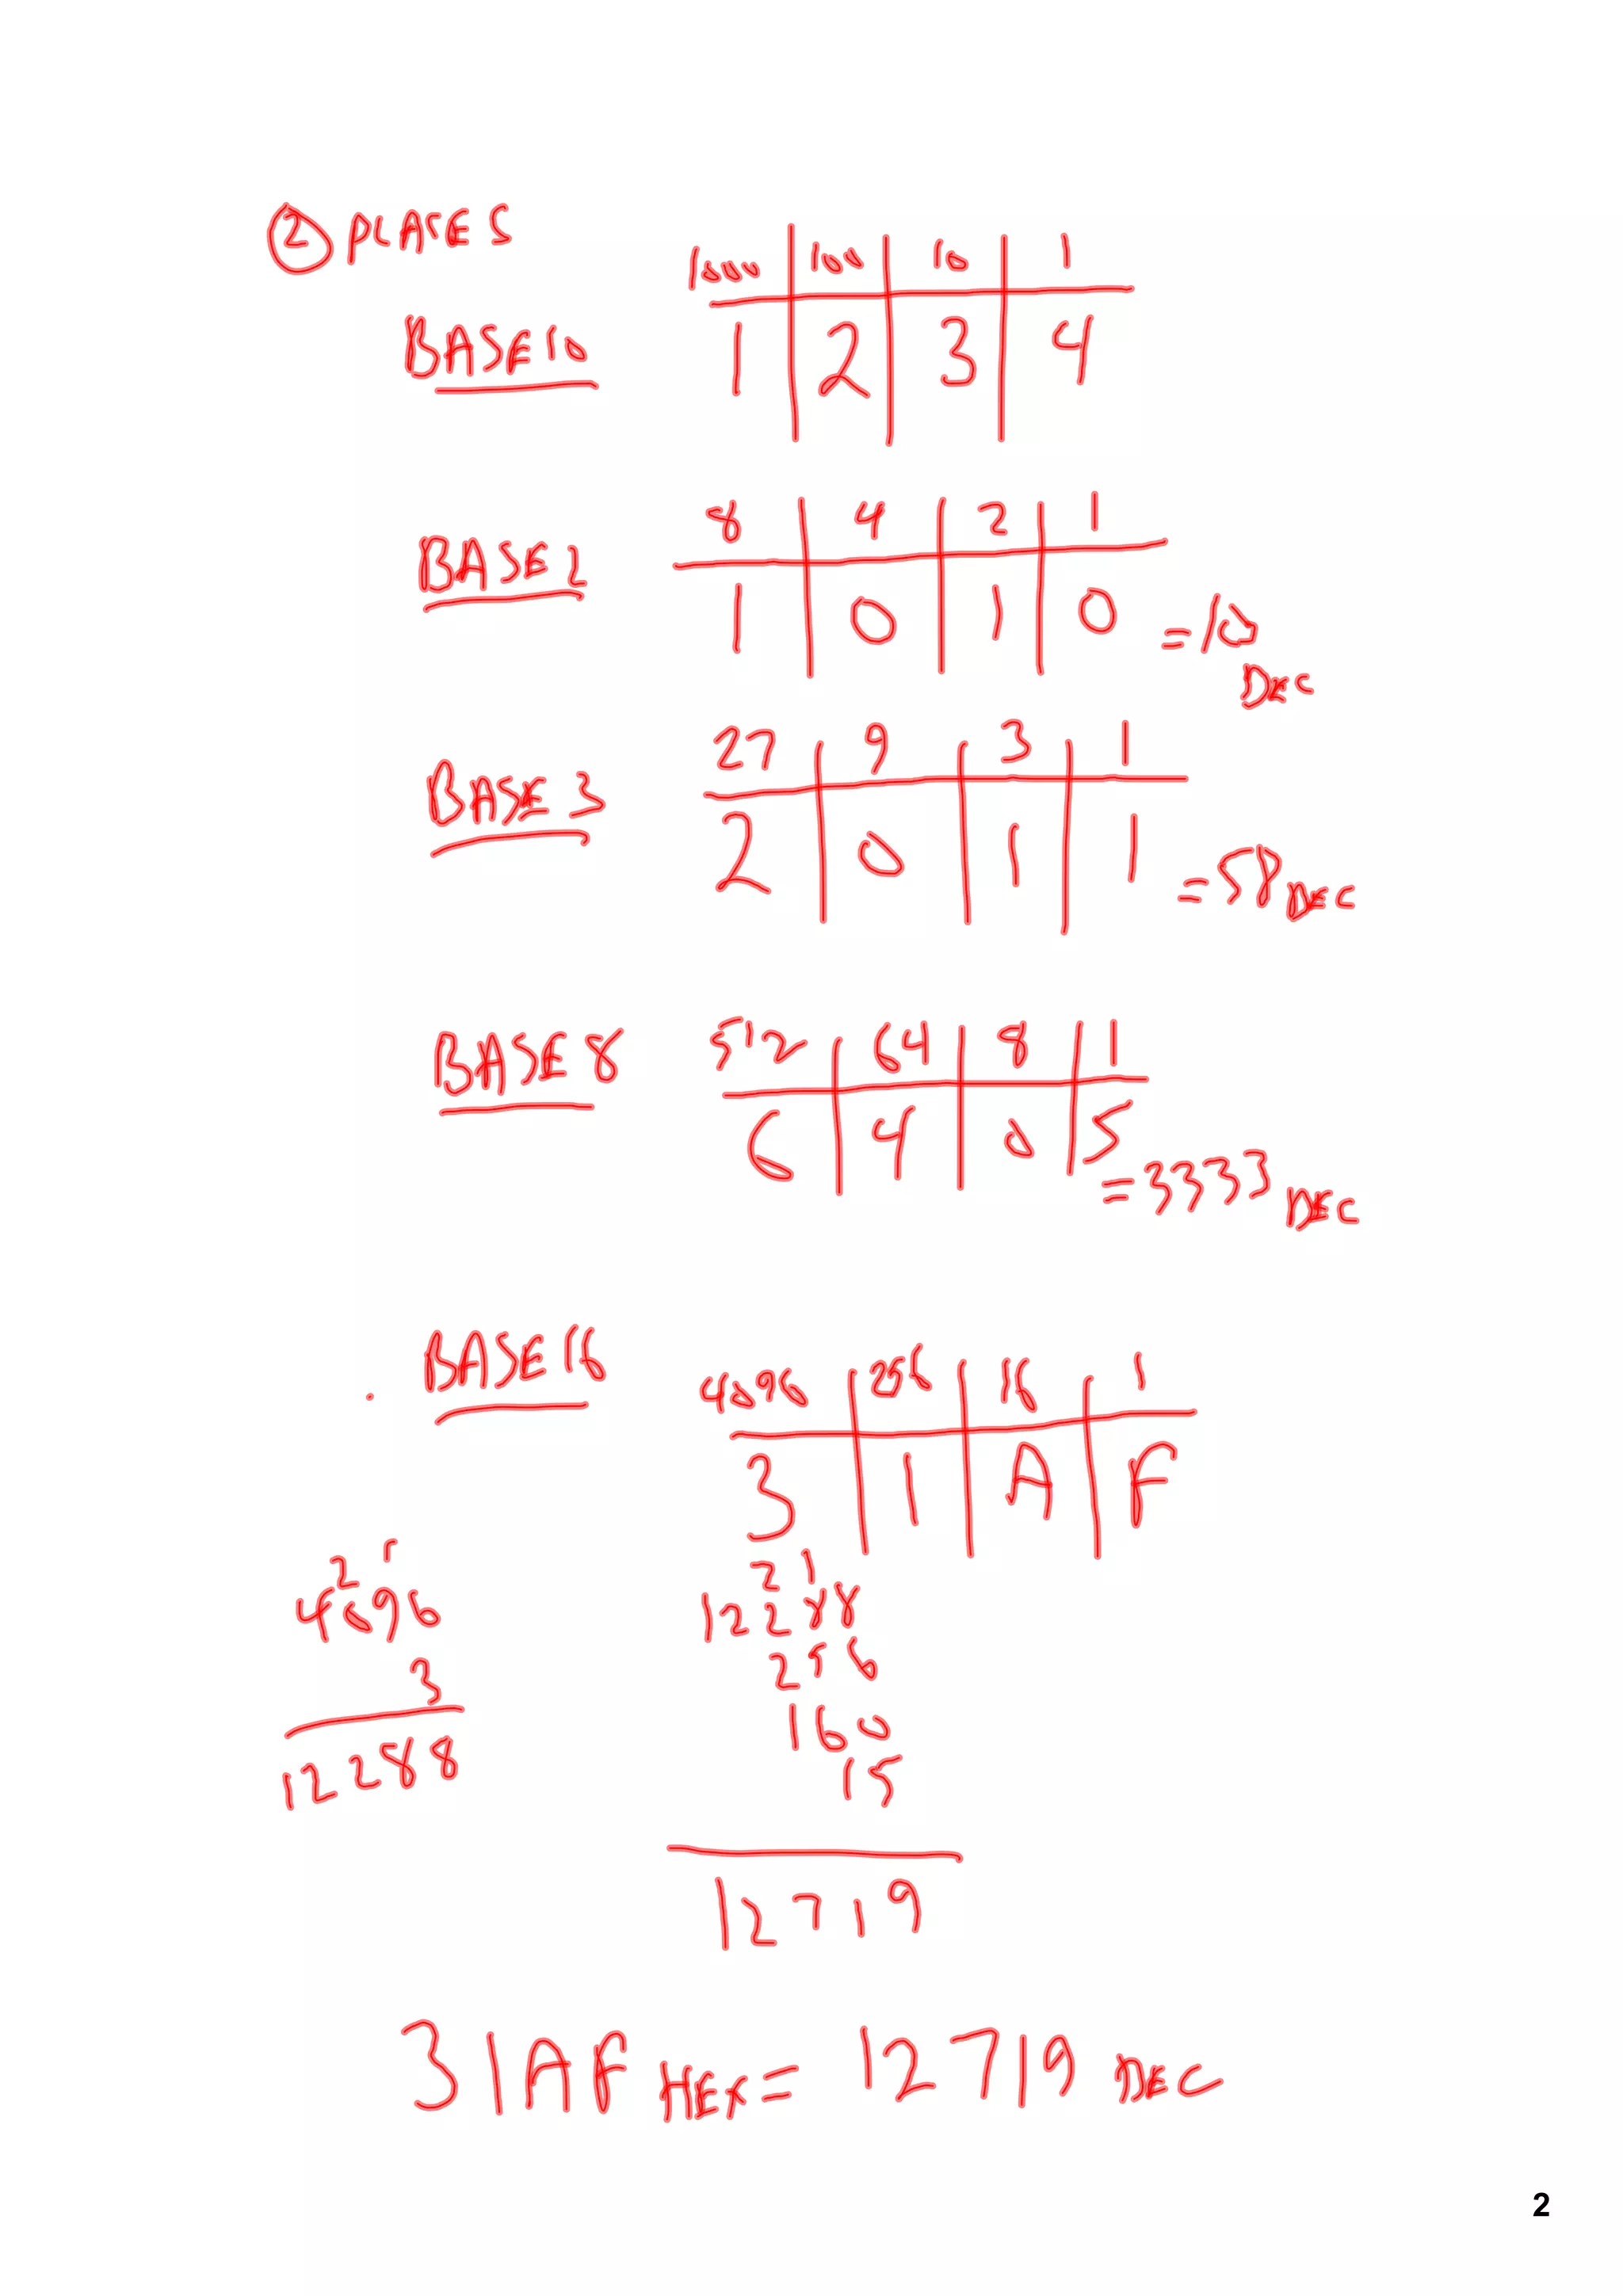 ② PLACES
1000 | 100 | 10 | 1
BASE 10 1 | 2 | 3 | 4
8 | 4 | 2 | 1
BASE 2 1 | 0 | 1 | 0 = 10 DEC
27 | 9 | 3 | 1
BASE 3 2 | 0 | 1 | 1 = 58 DEC
BASE 8 512 | 64 | 8 | 1
6 | 4 | 0 | 5 = 3333 DEC
BASE 16 4096 | 256 | 16 | 1
3 | 1 | A | F
2 1
4096
3
12288
2 1
12288
256
160
15
12719
31AF HEX = 12719 DEC
2